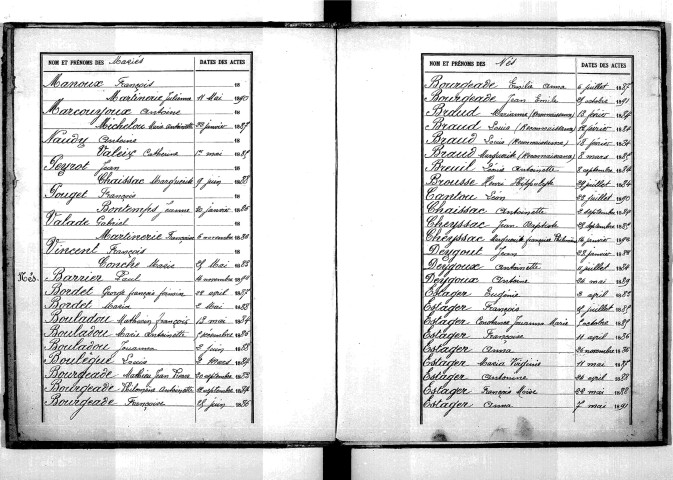 NOM ET PRÉNOMS DES Mariés DATES DES ACTES
Manoux François 18
Martinerie Julienne 11 Mai 1890
Marcoursoux Antoine 18
Michelou Marie Antoinette janvier 1887
Naudy Antoine 18
Valeix Catherine 1er mai 1885
Peyrot Jean 18
Chaissac Marguerite 9 juin 1888
Pouget François 18
Bontemps Jeanne 20 janvier 1885
Valade Gabriel 18
Martinerie Françoise 6 novembre 1886
Vincent François 18
Conche Marie 25 Mai 1885
Nés. Barrier Paul 14 novembre
Bordet George françois 28 avril 1885
Bordet Maria 2 Mai 1883
Bouladou Mathurin François 12 mai 1884
Bouladou Marie Antoinette novembre 1886
Bouladou Jeanne 2 juin 1888
Boulègue Louis 2 Mars
Bourgeade Mathieu Jean Pierre 20 septembre 1883
Bourgeade Philomène Antoinette septembre 1884
Bourgeade Françoise 25 juin 1886
NOM ET PRÉNOMS DES Nés DATES DES ACTES
Bourgeade Emilie Anna 6 juillet 1887
Bourgeade Jean Emile 25 octobre 1891
Braud Marianne (Reconnaissance) 12 février 1884
Braud Louis (Reconnaissance) 18 février 1884
Braud Louis (Reconnaissance) 18 février 1884
Braud Marguerite (Reconnaissance) 3 mars 1885
Breuil Antoinette 8 septembre 1884
Brousse Henri Hippolyte 29 juillet 1884
Cantou Léon 22 juillet 1890
Chaissac Antoinette 2 septembre 1889
Cheyssac Jean Baptiste septembre
Cheyssac Marguerite françoise janvier
Deygout Jean 23 janvier
Deygoux Antoinette juillet 1884
Deygoux Antoine 24 mai 1889
Estager Eugénie 3 avril 1883
Estager François juillet 1885
Estager Jeanne Marie octobre 1885
Estager Françoise 11 avril 1886
Estager Anna 26 novembre 1886
Estager Maria Virginie 11 mai 1887
Estager Antonine 24 avril 1888
Estager François Moïse 29 mai 1888
Estager Anna 7 mai 1891